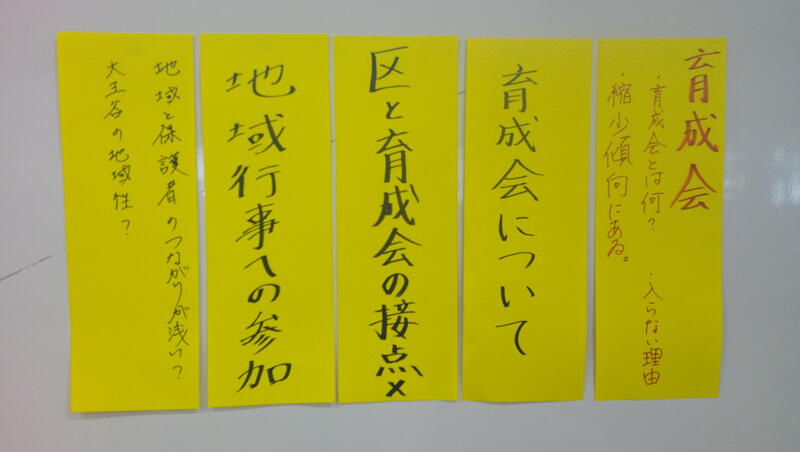 育成会
・育成会とは何? ・入らない理由
・縮少傾向にある。
育成会について
区と育成会の接点×
地域行事への参加
地域と保護者のつながりが浅い?
大王谷の地域性?